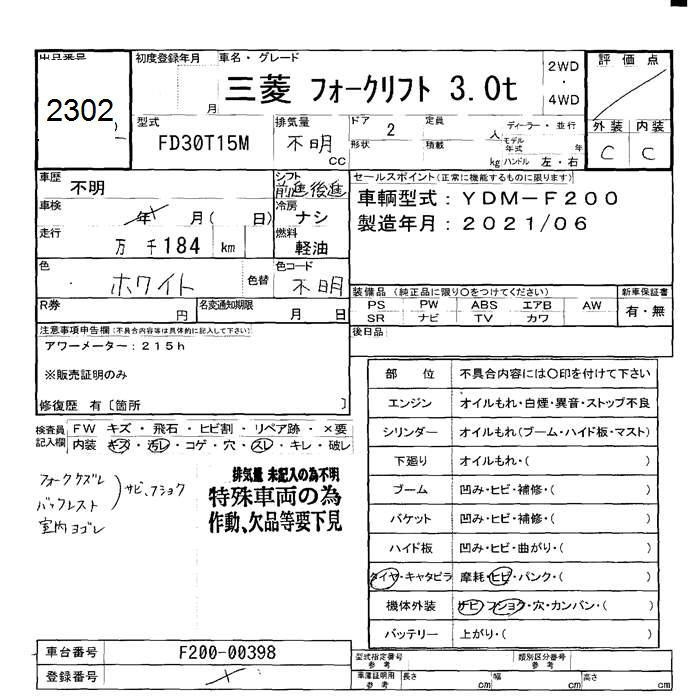 出品番号
2302
初度登録年月
月
車名・グレード
三菱 フォークリフト 3.0t
2WD
・
4WD
評価点
外装 内装
C C
型式
FD30T15M
排気量
不明
cc
ドア
2
定員
人
ディーラー・並行
形状
積載
kg
モデル年式
年
ハンドル 左・右
車歴
不明
シフト
前進後進
車検
年 月( 日)
冷房
ナシ
走行
万 千184 km
燃料
軽油
色
ホワイト
色替
色コード
不明
R券
円
名変通知期限
月 日
セールスポイント(正常に機能するものに限ります)
車輌型式:YDM-F200
製造年月:2021/06
装備品(純正品に限り〇をつけてください)
新車保証書
PS PW ABS エアB AW
SR ナビ TV カワ
有・無
後日品
注意事項申告欄(不具合内容等は具体的に記入して下さい)
アワーメーター:215h
※販売証明のみ
修復歴 有〔箇所 〕
検査員記入欄
FW キズ・飛石・ヒビ割・リペア跡・×要
内装・キズ・汚レ・コゲ・穴・スレ・キレ・破レ
フォーククズレ
バックレスト
室内ヨゴレ
サビ、フショク
排気量 未記入の為不明
特殊車両の為
作動、欠品等要下見
部位 不具合内容には〇印を付けて下さい
エンジン オイルもれ・白煙・異音・ストップ不良
シリンダー オイルもれ(ブーム・ハイド板・マスト)
下廻り オイルもれ・( )
ブーム 凹み・ヒビ・補修・( )
バケット 凹み・ヒビ・補修・( )
ハイド板 凹み・ヒビ・曲がり・( )
タイヤ・キャタピラ 摩耗・ヒビ・パンク・( )
機体外装 サビ・フショク・穴・カンバン・( )
バッテリー 上がり・( )
車台番号 F200-00398
登録番号
型式指定番号 参考
類別区分番号 参考
車庫証明用 参考
長さ cm 幅 cm 高さ cm